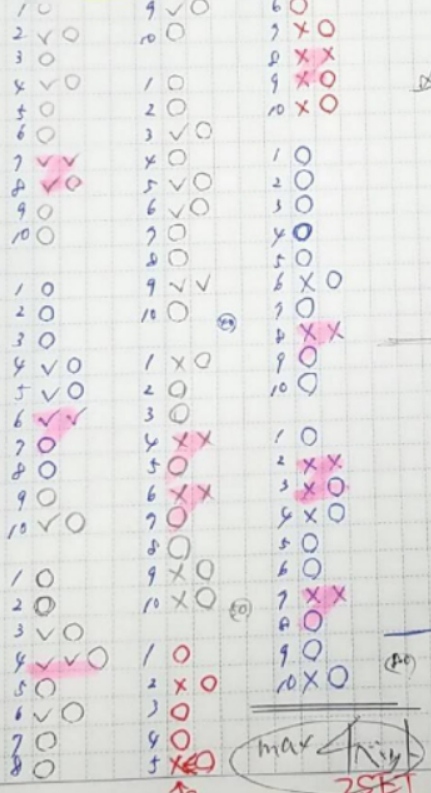 1 ○
2 ✓ ○
3 ○
4 ✓ ○
5 ○
6 ○
7 ✓ ✓
8 ✓ ○
9 ○
10 ○
1 ○
2 ○
3 ○
4 ✓ ○
5 ✓ ○
6 ✓ ✓
7 ○
8 ○
9 ○
10 ✓ ○
1 ○
2 ○
3 ✓ ○
4 ✓ ✓ ○
5 ○
6 ✓ ○
7 ○
8 ○
9 ✓ ○
10 ○
1 ○
2 ○
3 ✓ ○
4 ○
5 ✓ ○
6 ✓ ○
7 ○
8 ○
9 ✓ ✓
10 ○
1 × ○
2 ○
3 ○
4 × ×
5 ○
6 × ×
7 ○
8 ○
9 × ○
10 × ○
1 ○
2 × ○
3 ○
4 ○
5 × ○
6 ○
7 × ○
8 × ×
9 × ○
10 × ○
1 ○
2 ○
3 ○
4 ○
5 ○
6 × ○
7 ○
8 × ×
9 ○
10 ○
1 ○
2 × ×
3 × ○
4 × ○
5 ○
6 ○
7 × ×
8 ○
9 ○
10 × ○
max
2SET